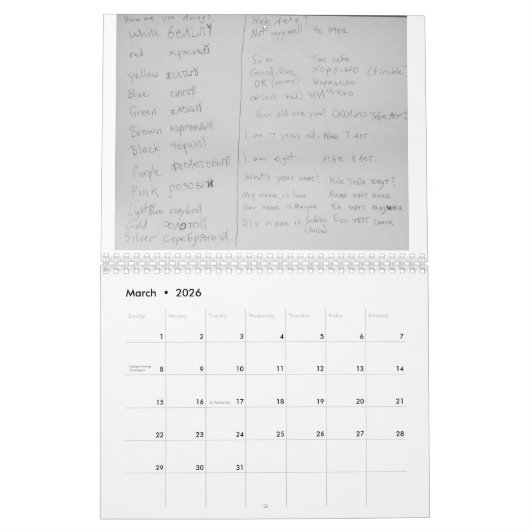 How are you doing?
White белый
red красный
yellow жёлтый
Blue синий
Green зелёный
Brown
Black чёрный
Purple фиолетовый
Pink розовый
Light Blue голубой
Gold золотой
Silver серебряный
Как дела?
Not very well Не очень
So so Так себе
Good/fine Хорошо
OK (normal) Нормально
OK (not bad) Ничего
How old are you? Сколько тебе лет?
I am 7 years old. Мне 7 лет.
I am eight Мне 8 лет.
What's your name? Как тебя зовут?
My name is Меня зовут
Her name is Её зовут
His name is Его зовут
March • 2026
Sunday Monday Tuesday Wednesday Thursday Friday Saturday
1 2 3 4 5 6 7
8 9 10 11 12 13 14
15 16 17 18 19 20 21
22 23 24 25 26 27 28
29 30 31